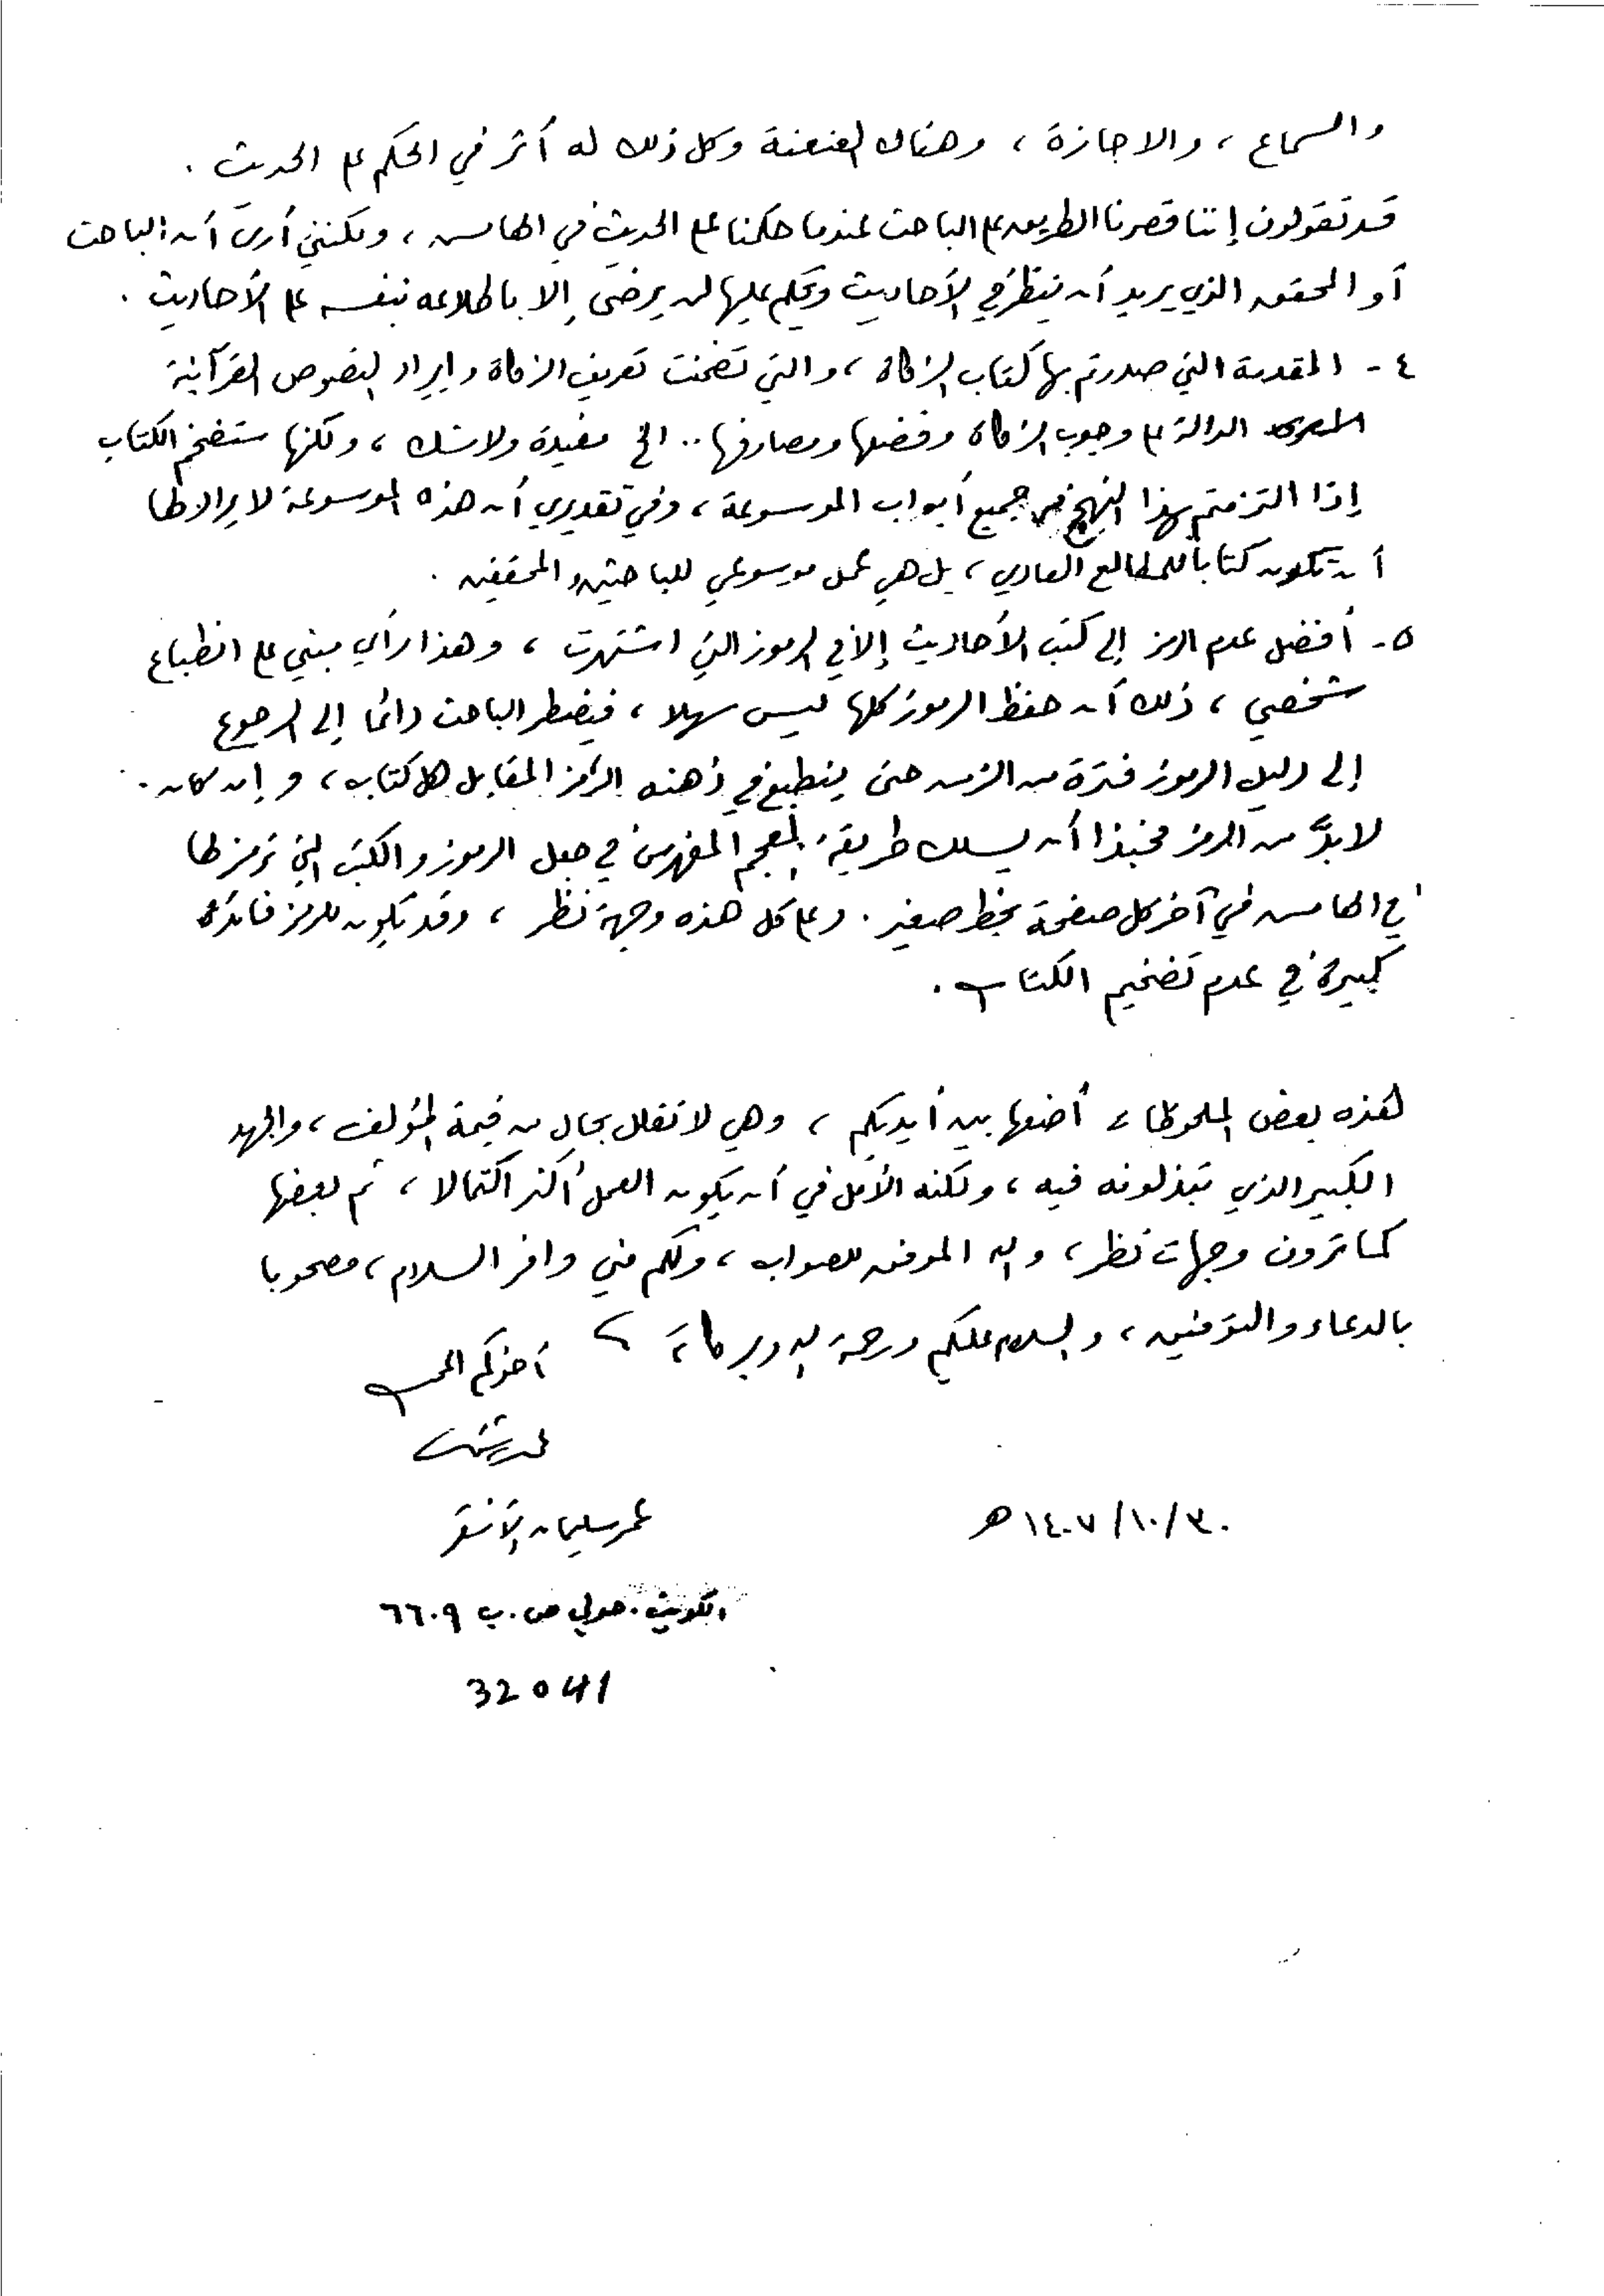 والسماع ، والاجازة ، وهناك العنعنة وكل ذلك له أثر في الحكم على الحديث .
قد تقولون إننا قصرنا الطريق على الباحث عندما حكمنا على الحديث في الهامش ، ولكنني أرى أن الباحث
أو المحقق الذي يريد أن ينظر في الأحاديث ويحكم عليها لن يرضى إلا باطلاعه بنفسه على الأحاديث .
٤ - المقدمة التي صدرتم بها كتاب الزكاة ، والتي تضمنت تعريف الزكاة وإيراد النصوص القرآنية
الدالة على وجوب الزكاة وفضلها ومصارفها .. الخ مفيدة ولاشك ، ولكنها ستضخم الكتاب
إذا التزمتم بهذا النهج في جميع أبواب الموسوعة ، وفي تقديري أن هذه الموسوعة لا يراد لها
أن تكون كتابا للمطالع العادي ، بل هي عمل موسوعي للباحثين والمحققين .
٥ - أفضل عدم الرمز إلى كتب الأحاديث إلا في الرموز التي اشتهرت ، وهذا رأي مبني على انطباع
شخصي ، ذلك أن حفظ الرموز كلها ليس سهلا ، فيضطر الباحث دائما إلى الرجوع
إلى دليل الرموز فترة من الزمن حتى ينطبع في ذهنه الرمز المقابل لكل كتاب ، و إن كان .
لا بدَّ من الرمز فحبذا أن يسلك طريقة المعجم المفهرس في جعل الرموز والكتب التي ترمز لها
في الهامش في آخر كل صفحة بخط صغير . وعلى كل هذه وجهة نظر ، وقد يكون للرمز فائدة
كبيرة في عدم تضخيم الكتاب .
هذه بعض الملحوظات أضعها بين أيديكم ، وهي لا تقلل بحال من قيمة المؤلف ، والجهد
الكبير الذي تبذلونه فيه ، ولكنه الأمل في أن يكون العمل أكثر اكتمالا ، ثم بعضها
كما ترون وجهات نظر ، والله الموفق للصواب ، ولكم مني وافر السلام ، مصحوبا
بالدعاء والتوفيق ، والسلام عليكم ورحمة الله وبركاته ،
أخوكم المحب
عمر سليمان الأشقر
٣٠/١٠/١٤٠٧ هـ
الكويت . حولي ص . ب ٦٦٠٩
32041